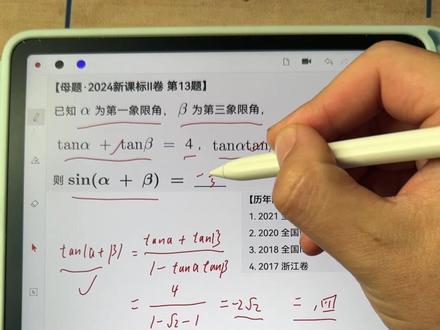 【母题·2024新课标II卷 第13题】
已知 α 为第一象限角，β 为第三象限角，
tanα + tanβ = 4，tanαtan
则 sin(α + β) =
【历年
1. 2021
2. 2020 全国
3. 2018 全国
4. 2017 浙江卷
tan(α+β) = tanα + tanβ / 1 - tanα tanβ
= 4 / 1-√2-1 = -2√2 = , 四